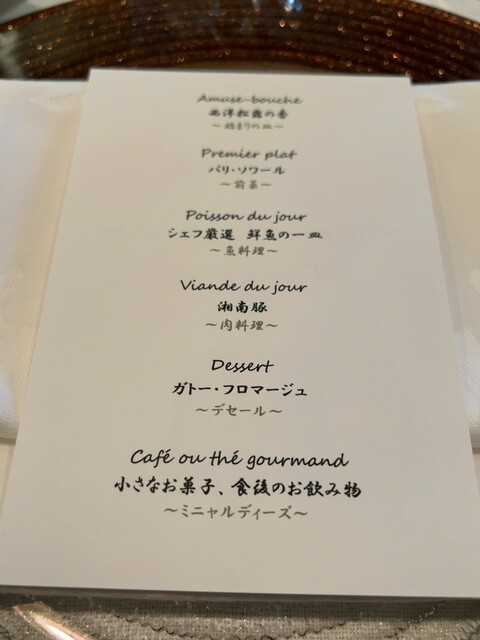 Amuse-bouche
西洋松露の香
～始まりの皿～
Premier plat
パリ・ソワール
～前菜～
Poisson du jour
シェフ厳選 鮮魚の一皿
～魚料理～
Viande du jour
湘南豚
～肉料理～
Dessert
ガトー・フロマージュ
～デセール～
Café ou thé gourmand
小さなお菓子、食後のお飲み物
～ミニャルディーズ～